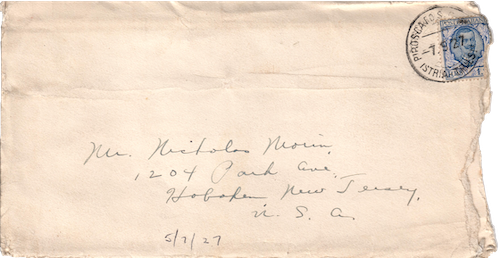 PIROSCAFO S
-7.9.27
ISTRIA
Mr. Nicholas Morin,
1204 Park Ave.
Hoboken New Jersey,
U. S. A.
5/7/27